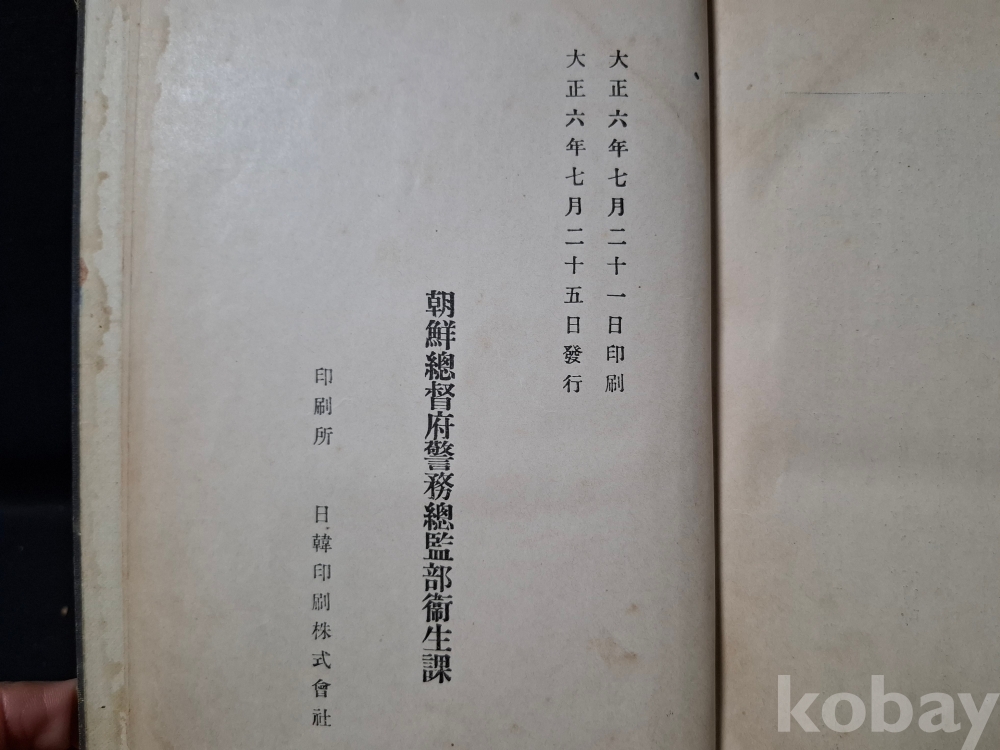 大正六年七月二十一日印刷
大正六年七月二十五日發行
朝鮮總督府警務總監部衞生課
印刷所 日韓印刷株式會社
kobay